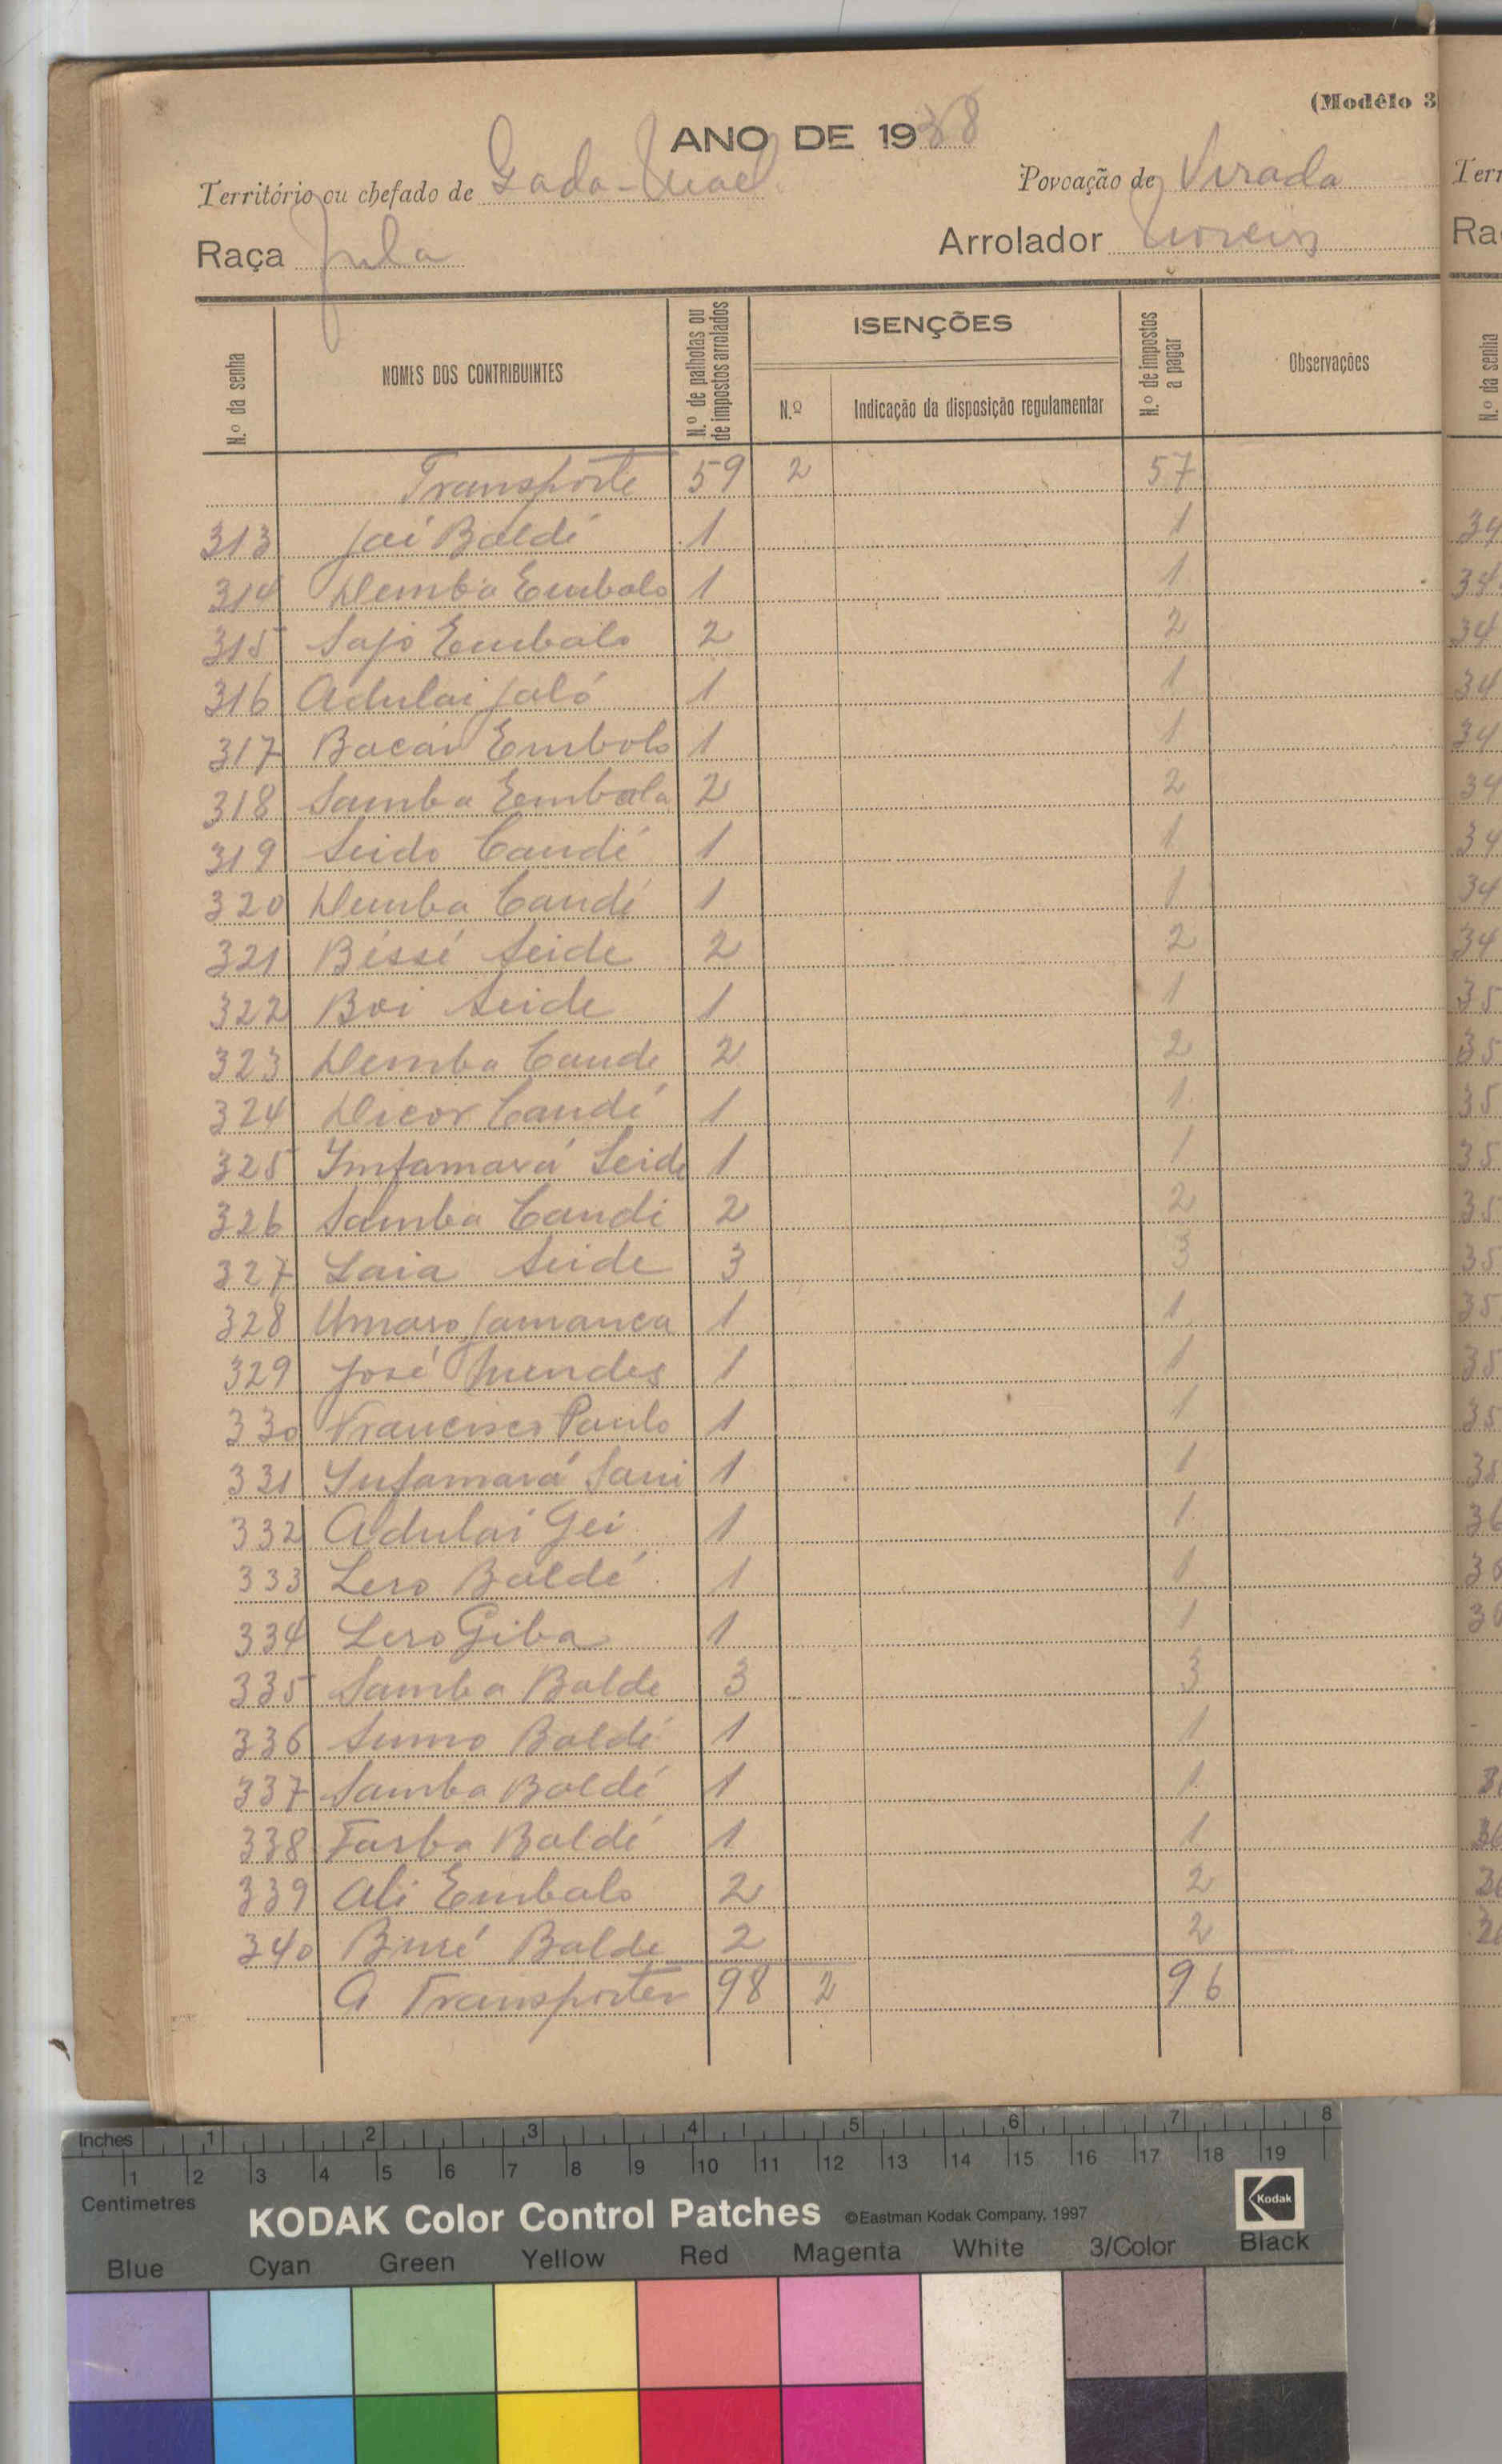 (Modêlo 3
ANO DE 1938
Território ou chefado de Gada-
Povoação de Virada
Raça Fula
Arrolador
N.º da senha
NOMES DOS CONTRIBUINTES
N.º de palhotas ou de impostos arrolados
ISENÇÕES
N.º
Indicação da disposição regulamentar
N.º de impostos a pagar
Observações
Transporte 59 2 57
313 Jai Baldé 1 1
314 Demba Embalo 1 1
315 Sajo Embalo 2 2
316 Adulai Jaló 1 1
317 Bacar Embalo 1 1
318 Samba Embala 2 2
319 Seido Candé 1 1
320 Demba Candé 1 1
321 Béssé Seide 2 2
322 Boi Seide 1 1
323 Demba Cande 2 2
324 Dicor Candé 1 1
325 Infamará Seide 1 1
326 Samba Candi 2 2
327 Laia Seide 3 3
328 Umaro Jamanca 1 1
329 José Mendes 1 1
330 Francisco Paulo 1 1
331 Infamará Sani 1 1
332 Adulai Gei 1 1
333 Lero Baldé 1 1
334 Lero Giba 1 1
335 Samba Balde 3 3
336 Sumo Baldé 1 1
337 Samba Baldé 1 1
338 Farba Baldé 1 1
339 Ali Embalo 2 2
340 Buré Balde 2 2
A Transporter 98 2 96
Inches 1 2 3 4 5 6 7 8
1 2 3 4 5 6 7 8 9 10 11 12 13 14 15 16 17 18 19
Centimetres
KODAK Color Control Patches ©Eastman Kodak Company, 1997 Kodak
Blue Cyan Green Yellow Red Magenta White 3/Color Black